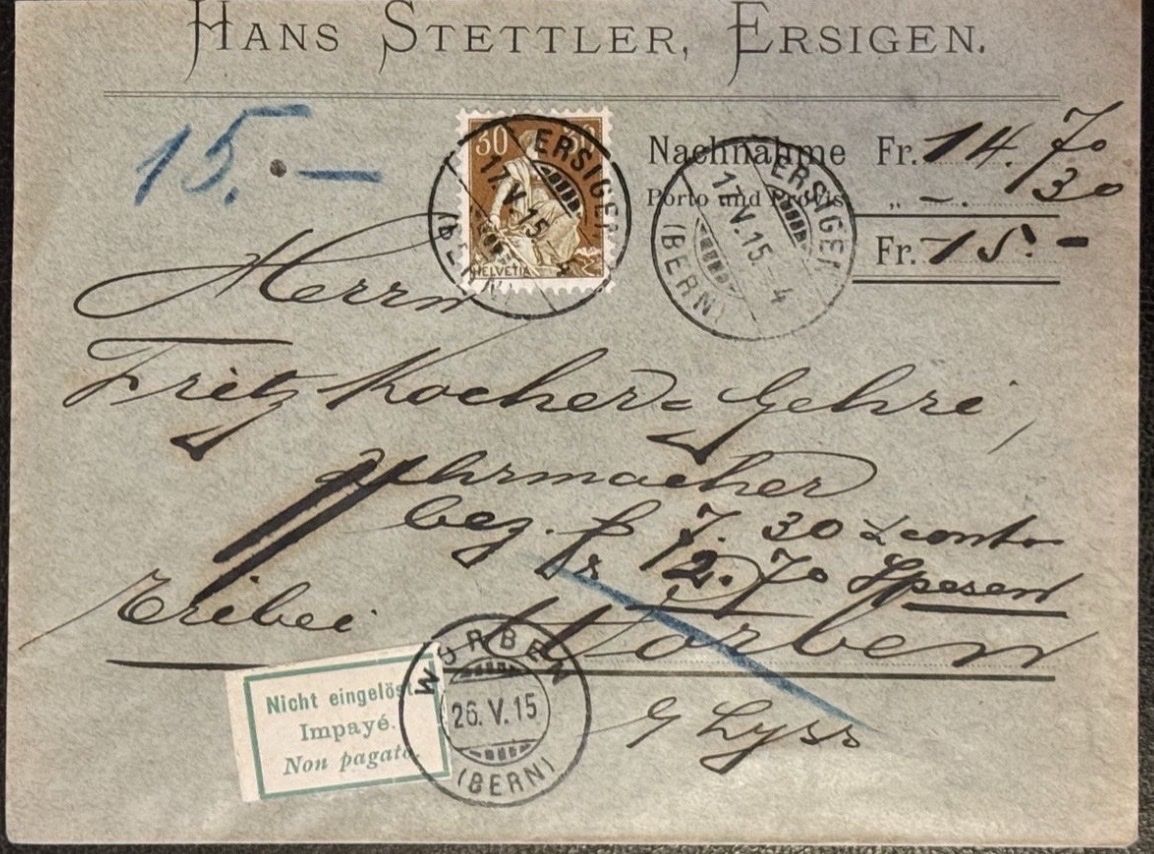 HANS STETTLER, ERSIGEN.
15.—
30 30
HELVETIA
ERSIGEN
17.V.15
(BERN)
Nachnahme Fr. 14.70
Porto und Provis. „ —.30
Fr. 15.—
ERSIGEN
17.V.15 4
(BERN)
Herrn
Fritz Kocher-Gehri,
Uhrmacher
bez. fr 7.30
fr 2.70 Spesen
bei Worben
WORBEN
26.V.15
(BERN)
Nicht eingelöst.
Impayé.
Non pagato.
Lyss